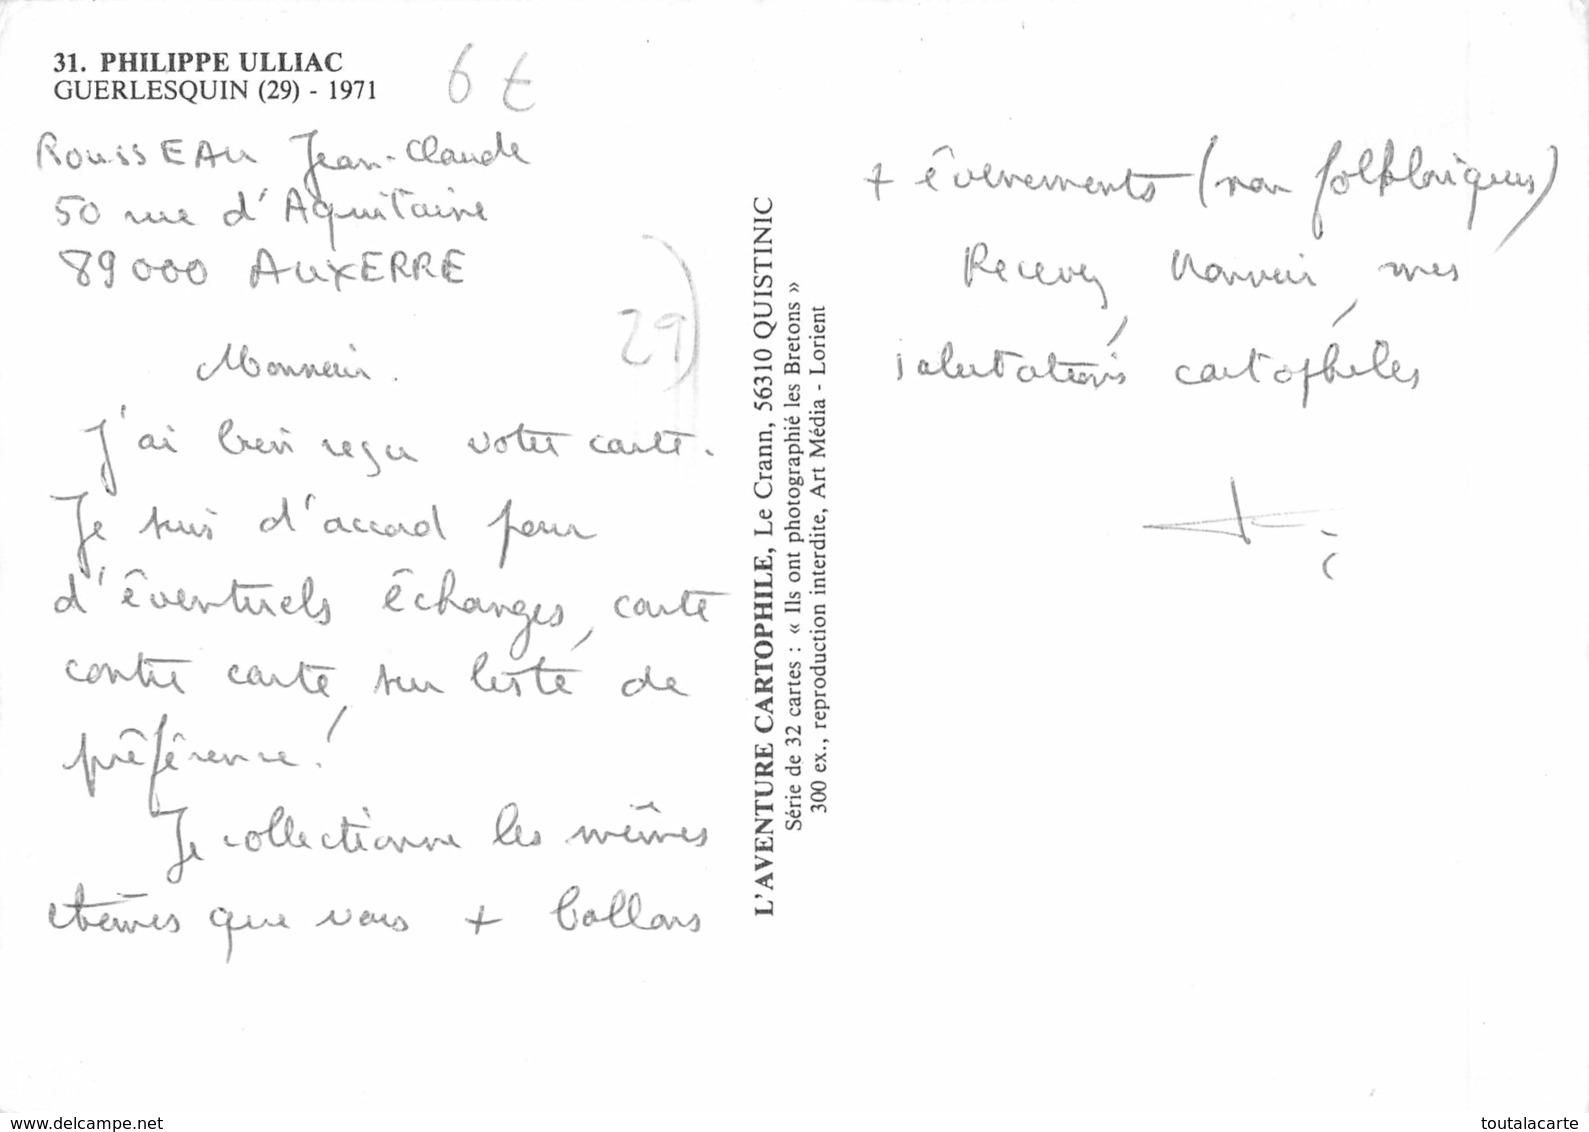 31. PHILIPPE ULLIAC
GUERLESQUIN (29) - 1971
6 €
ROUSSEAU Jean-Claude
50 rue d'Aquitaine
89000 AUXERRE
29
Monsieur.
J'ai bien reçu votre carte.
Je suis d'accord pour
d'éventuels échanges, carte
contre carte, sur liste de
préférence!
Je collectionne les mêmes
thèmes que vous + ballons
L'AVENTURE CARTOPHILE, Le Crann, 56310 QUISTINIC
Série de 32 cartes : « Ils ont photographié les Bretons »
300 ex., reproduction interdite, Art Média - Lorient
+ évènements (non folkloriques)
Recevez, Monsieur, mes
salutations cartophiles
www.delcampe.net
toutalacarte